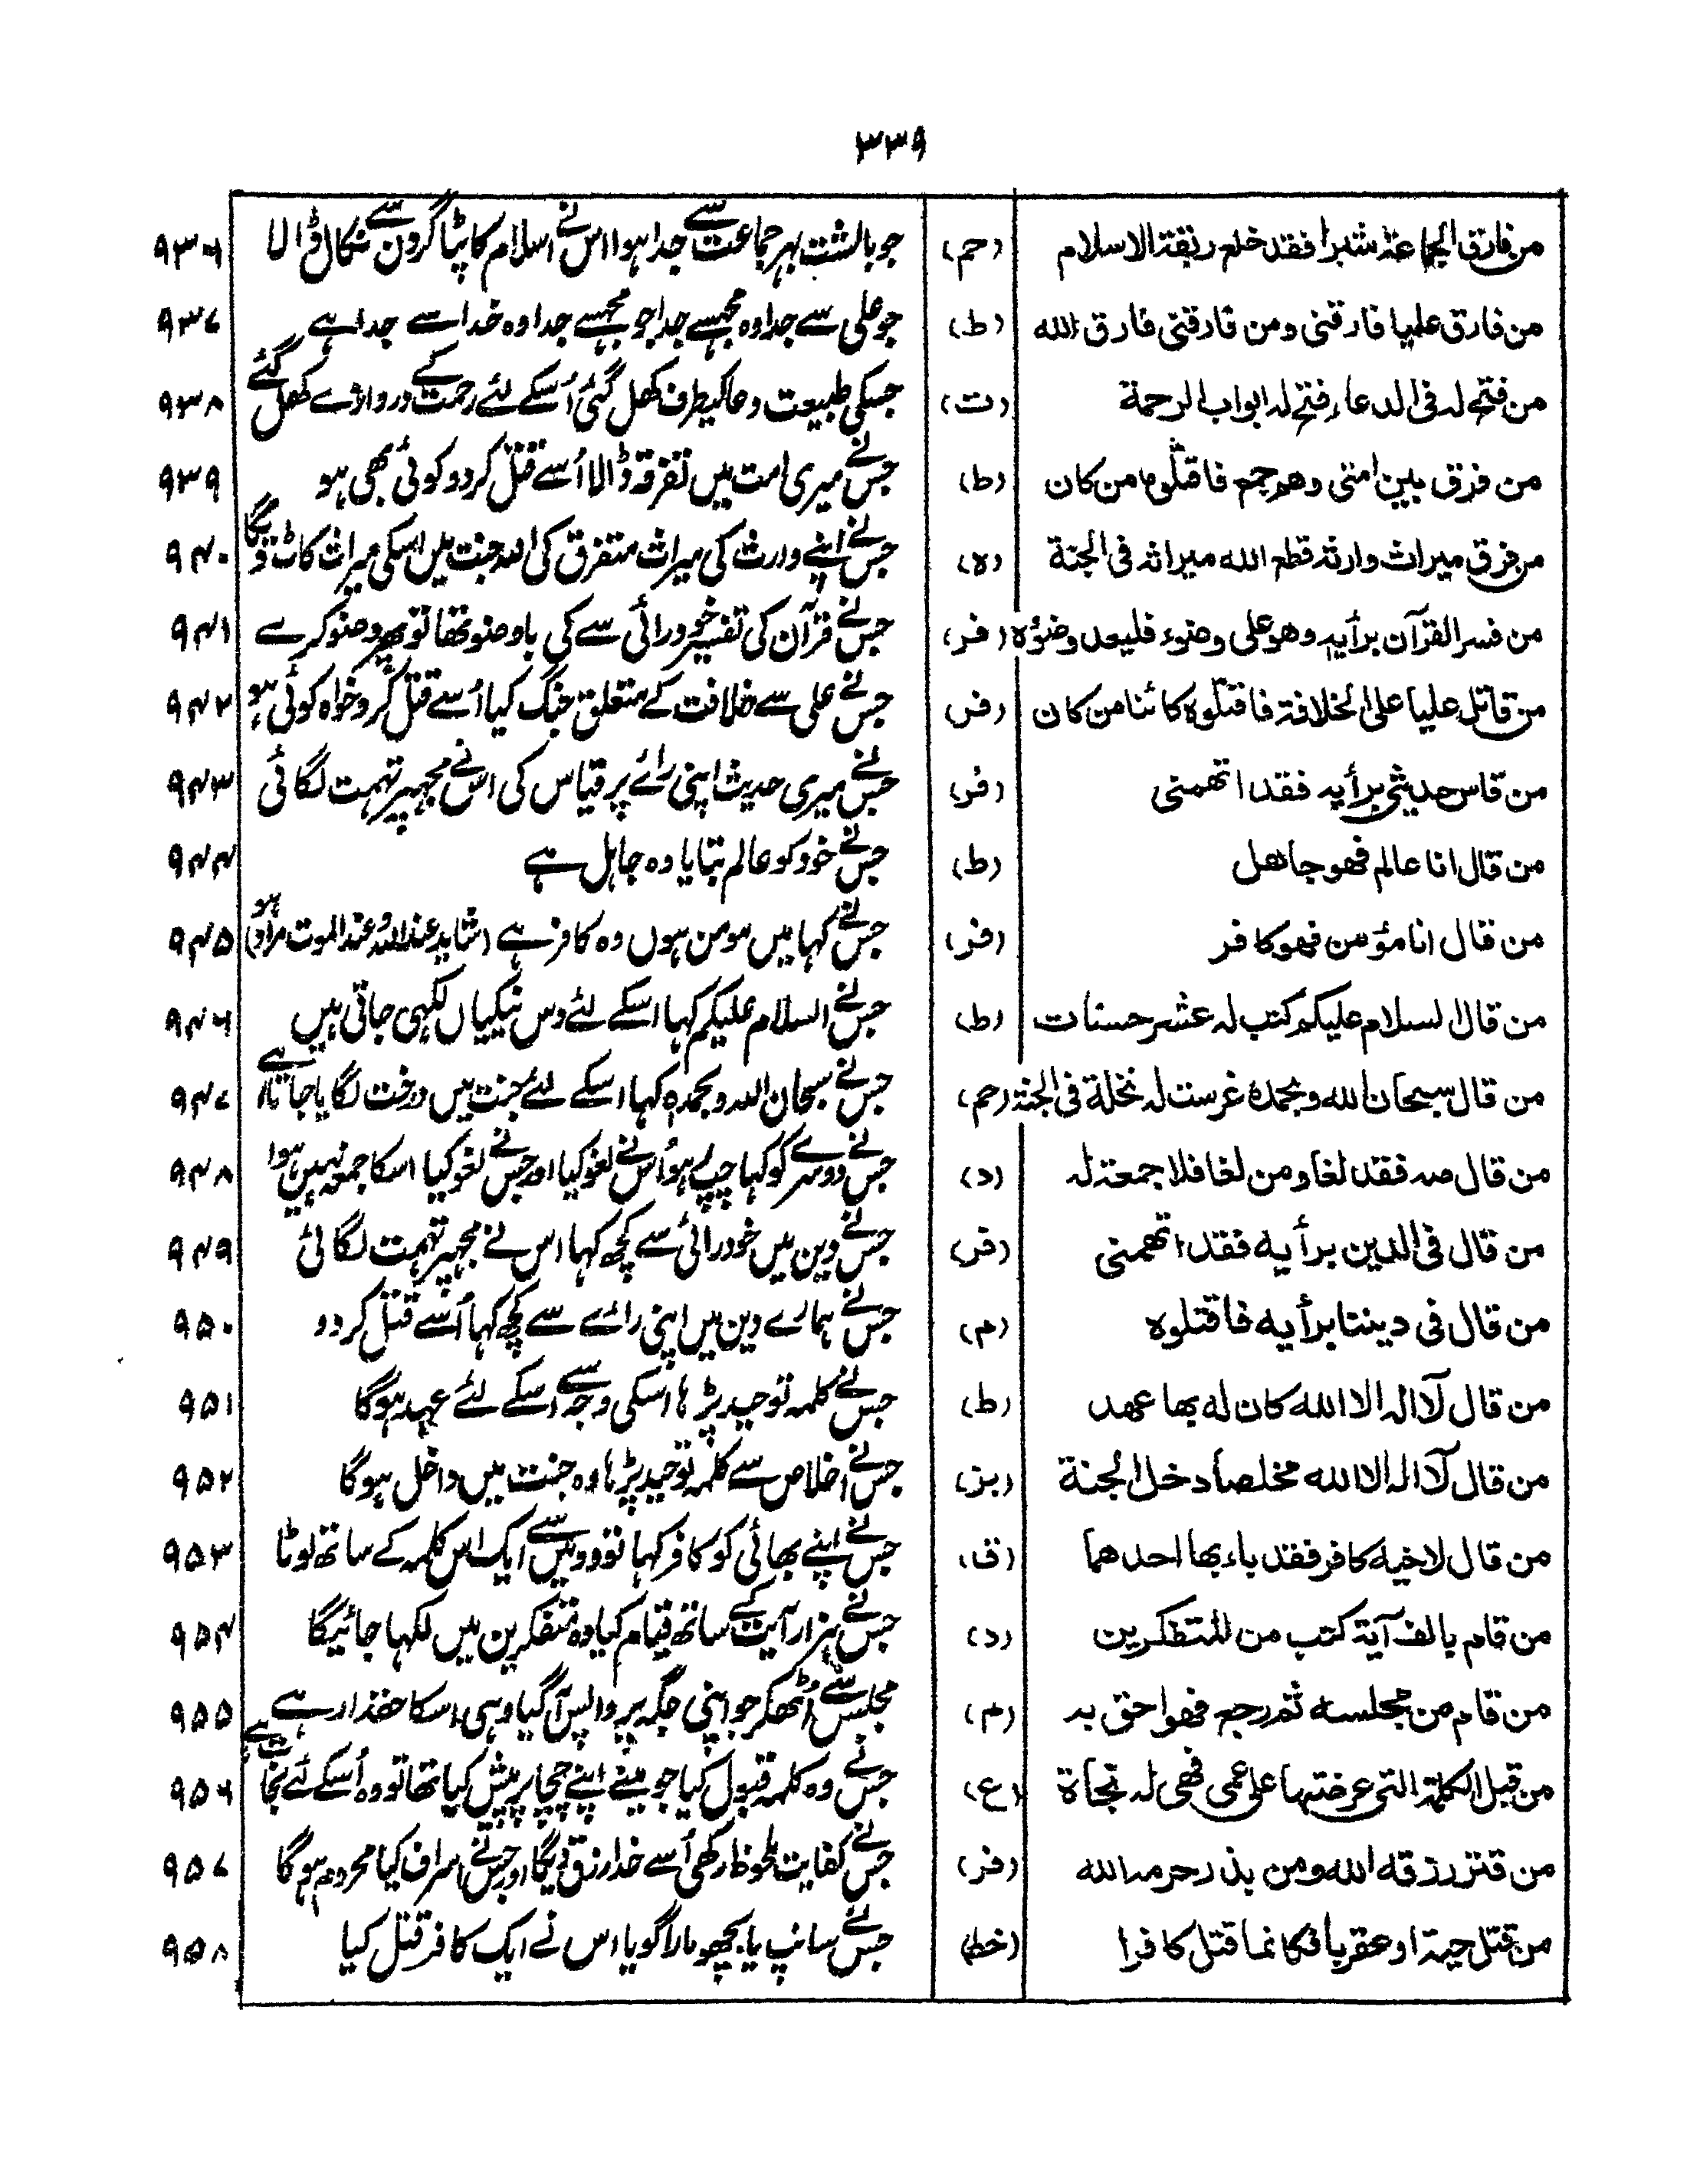 ۳۳۹
من فارق الجماعة شبرا فقد خلع ربقة الاسلام (حم) جو بالشت بہر جماعت سے جدا ہوا اس نے اسلام کا پٹا گردن سے نکال ڈالا ۹۳۶
من فارق عليا فارقني ومن فارقني فارق الله (ط) جو علی سے جدا وہ مجہسے جدا جو مجہسے جدا وہ خدا سے جدا ہے ۹۳۷
من فتح له في الدعاء فتح له ابواب الرحمة (ت) جسکی طبیعت دعا کیطرف کھل گئی اُسکے لئے رحمت کے دروازے کھل گئے ۹۳۸
من فرق بين امتي وهم جمع فاقتلوه من كان (ط) جس نے میری امت میں تفرقہ ڈالا اُسے قتل کردو کوئی بھی ہو ۹۳۹
من فرق ميراث وارثه قطع الله ميراثه في الجنة (ه) جس نے اپنے وارث کی میراث متفرق کی اللہ جنت میں اسکی میراث کاٹ دیگا ۹۴۰
من فسر القرآن برأيه وهو على وضوء فليعد وضوءه (فر) جس نے قرآن کی تفسیر خودرائی سے کی باوضو تھا تو پھر وضو کرے ۹۴۱
من قاتل عليا على الخلافة فاقتلوه كائنا من كان (فر) جس نے علی سے خلافت کے متعلق جنگ کیا اُسے قتل کردو خواہ کوئی ہو ۹۴۲
من قاس حديثي برأيه فقد اتهمني (فر) جس نے میری حدیث اپنی رائے پر قیاس کی اس نے مجہپر تہمت لگائی ۹۴۳
من قال انا عالم فهو جاهل (ط) جس نے خود کو عالم بتایا وہ جاہل ہے ۹۴۴
من قال انا مؤمن فهو كافر (فر) جس نے کہا میں مومن ہوں وہ کافر ہے (شاید عند اللہ و عند الموت مراد ہو) ۹۴۵
من قال السلام عليكم كتب له عشر حسنات (ط) جس نے السلام علیکم کہا اسکے لئے دس نیکیاں لکہی جاتی ہیں ۹۴۶
من قال سبحان الله وبحمده غرست له نخلة في الجنة (حم) جس نے سبحان اللہ وبحمدہ کہا اسکے لئے جنت میں درخت لگایا جاتا ہے ۹۴۷
من قال صه فقد لغا ومن لغا فلا جمعة له (د) جس نے دوسرے کو کہا چپ ہو اُس نے لغو کیا اور جس نے لغو کیا اسکا جمعہ نہیں ہوا ۹۴۸
من قال في الدين برأيه فقد اتهمني (فر) جس نے دین میں خودرائی سے کچھ کہا اس نے مجہپر تہمت لگائی ۹۴۹
من قال في ديننا برأيه فاقتلوه (م) جس نے ہمارے دین میں اپنی رائے سے کچھ کہا اُسے قتل کردو ۹۵۰
من قال لآ اله الا الله كان له بها عهد (ط) جس نے کلمہ توحید پڑہا اسکی وجہ سے اسکے لئے عہد ہوگا ۹۵۱
من قال لآ اله الا الله مخلصا دخل الجنة (بز) جس نے اخلاص سے کلمہ توحید پڑہا وہ جنت میں داخل ہوگا ۹۵۲
من قال لاخيه كافر فقد باء بها احدهما (ق) جس نے اپنے بھائی کو کافر کہا تو دو میں سے ایک اس کلمہ کے ساتھ لوٹا ۹۵۳
من قام بالف آية كتب من المتفكرين (د) جس نے ہزار آیت کے ساتھ قیام کیا وہ متفکرین میں لکہا جائیگا ۹۵۴
من قام من مجلسه ثم رجع فهو احق به (م) مجلس سے اُٹھکر جو اپنی جگہ پر واپس آگیا وہی اسکا حقدار ہے ۹۵۵
من قبل الكلمة التي عرضتها على عمي فهي له نجاة (ع) جس نے وہ کلمہ قبول کیا جو مینے اپنے چچا پر پیش کیا تھا تو وہ اُسکے لئے نجات ہے ۹۵۶
من قتر رزقه الله ومن بذر حرمه الله (فر) جس نے کفایت ملحوظ رکھی اُسے خدا رزق دیگا اور جس نے اسراف کیا محروم ہوگا ۹۵۷
من قتل حية او عقربا فكانما قتل كافرا (خط) جس نے سانپ یا بچھو مارا گویا اس نے ایک کافر قتل کیا ۹۵۸